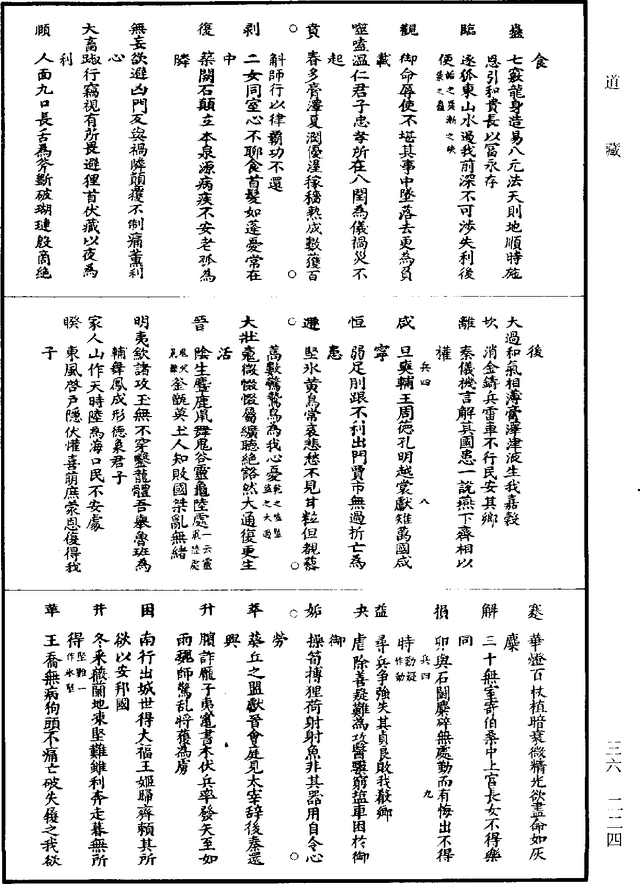 道藏
食
蠱 七竅龍身造易八元法天則地順時施
恩引和貴長以富永存
臨 逐狐東山水過我前深不可涉失利後
便
觀 御命辱使不堪其事中墜落去更為負
載
噬嗑温仁君子忠孝所在八閏為儀禍災不
起
賁 春多膏澤夏潤優渥稼穡熟成數獲百
斛師行以律霸功不還
剥 二女同室心不聊食首髮如蓬憂常在
中
復 築闕石顛立本泉源病疾不安老孤為
隣
無妄欲避凶門反與禍隣顛覆不制痛薰利
心
大畜跛行竊視有所畏避狸首伏藏以夜為
利
順 人面九口長舌為斧斷破瑚璉殷商絶
後
大過和氣相薄膏澤津液生我嘉穀
坎 消金鑄兵雷車不行民安其鄉
離 秦儀機言解其國患一說燕下齊相以
權
兵四 八
咸 旦奭輔王周德孔明越裳獻雉萬國咸
寧
恒 弱足刖跟不利出門賈市無過折亡為
患
遯 堅冰黃鳥常哀悲愁不見甘粒但覩藜
萬數驚鷙鳥為我心憂
大壯毫微惙惙屬纊聽絶豁然大通復更生
活
晉 陰生麋鹿鼠舞鬼谷靈龜陸處
釜甑草土人知敗國桀亂無緒
明夷欽諸攻玉無不穿鑿龍體吾舉魯班為
輔舞鳳成形德象君子
家人山作天時陸為海口民不安處
睽 東風啓戶隱伏懽喜萌庶蒙恩復得我
子
蹇 華燈百枝植暗衰微精光欲盡命如灰
糜
解 三十無室寄伯桑中上宮長女不得樂
同
兵四 九
損 卵與石鬭糜碎無處動而有悔出不得
時
益 尋兵爭強失其貞良敗我殽鄉
夬 虐除善疑難為攻醫驥窮鹽車困於御
御
姤 操筍搏狸荷射射魚非其器用自令心
勞
萃 葵丘之盟獻晉會庭見太宰辭後秦還
興
升 臏詐龐子夷竈書木伏兵率發矢至如
雨魏師驚亂將獲為虜
困 南行出城世得大福王姬歸齊賴其所
欲以安邦國
井 冬采薇蘭地凍堅難雖利奔走暮無所
得
革 王喬無病狗頭不痛亡破失履之我袄
三六 二二四